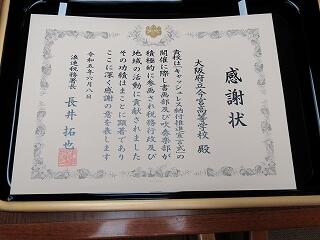 感謝状
大阪府立今宮高等学校 殿
貴校はキャッシュレス納付推進宣言式の
開催に際し書画部及び吹奏楽部が
積極的に参画され税務行政及び
地域の活動に貢献されました
その功績はまことに顕著であり
ここに深く感謝の意を表します
令和五年六月八日
浪速税務署長 長井 拓也